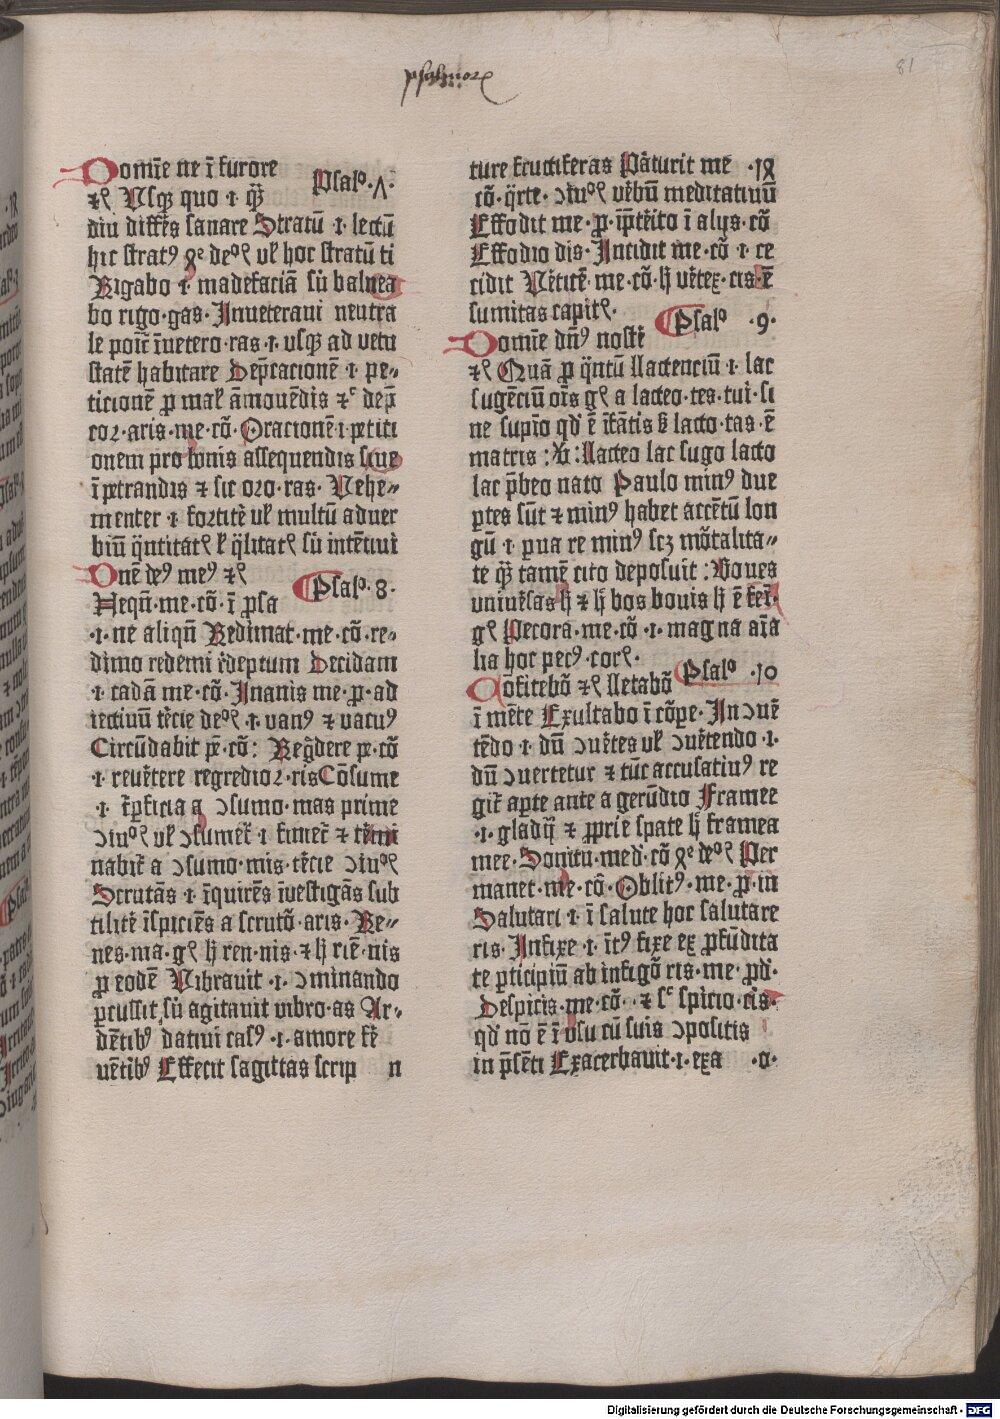 psalmorꝫ
81
Domīe ne ī furore
Psalꝰ·Λ·
ꝛc̄ Vsqꝫ quo ·i· qꝫ̄
diu differs sanare Stratū ·i· lectū
hic stratꝰ
Rigabo ·i· madefaciā sū balnea
bo rigo·gas· Inueterani neutra
le ponit īuetero·ras·i·vsqꝫ ad vetu
statē habitare Dep̄cacionē ·i· pe⸗
ticionē ꝓ mal̄ āmouēdis ⁊
cor·aris·me·cō· Oracionē·i·petiti
onem pro bonis assequendis siue
īpetrandis ⁊ sic oro·ras· Vehe⸗
menter ·i· fortit̄ vl̄ multū aduer
biū
Dn̄e deꝰ meꝰ ⁊c̄
Psalꝰ·8·
Nequn̄·me·cō·ī psa
·i· ne aliqn̄ Redimat·me·cō·re⸗
dimo redemi redeptum Decidam
·i· cadā me·cō· Inanis me·ꝓ·ad
iectiuū t̄cie deꝰ ·i· vanꝰ ⁊ vacuꝰ
Circūdabit pe·cō: Reḡdere pe·cō
·i· reu̅tere regredior·ris Cōsume
·i· ꝑficia a ɔsumo·mas prime
nabit̄ a ɔsumo·mis·t̄cie
Scrutās ·i· īquirēs īuestigās sub
tilit̄ īspiciēs a scrutō·aris· Re⸗
nes·ma·g hͦ ren·nis·⁊ hͦ riē·nis
ꝑ eodē Vibrauit ·i· ɔminando
ꝑcussit sū agitauit vibro·as Ar⸗
dētibꝰ datiui casꝰ ·i· amore
uētibꝰ Effecit sagittas scrip n
ture fructiferas Paturit me ·IX
cō·q̄rte· ve̅bū meditatiuū
Effodit me·ꝓ·ip̄terito ī alys·cō
Effodio dis· Incidit me·cō ·i· ce
cidit Ve̅ticē·me·cō·hͦ ve̅tex·cis·ē
sumitas capitꝭ·
Psalꝰ ·9·
Domīe dn̄ꝰ nost̄
⁊c̄ Quā ꝓ q̄ntū llactenciū ·i· lac
sugenciū oīs gꝭ a lacteo·tes·tui·si
ne supīo qd̄ ē
matris :℣: llacteo lac sugo lacto
lac p̄beo nato Paulo minꝰ due
ꝑtes sūt ⁊ minꝰ habet accētū lon
gū ·i· parua re minꝰ scꝫ mōtalita⸗
te qꝫ̄ tamē cito deposuit: Boues
vniue̅sas hͦ ⁊ hͦ bos bouis hͦ ē fei·
gꝭ Pecora·me·cō·i·magna aīa
lia hoc pecꝰ·corꝭ·
Psalꝰ ·10
Cōfitebō ⁊c̄ lletabō
ī mēte Exultabo ī cōꝑe· In ɔuē
tēdo ·i· dū ɔue̅tes vl̄ ɔue̅tendo ·i·
dū ɔuertetur ⁊ tūc accusatiuꝰ re
git̄ aꝑte ante a gerūdio Framee
·i· gladij ⁊ ꝓprie spate hͦ framea
mee· Sonitu·med·cō Per
manet·me·cō· Oblitꝰ·me·ꝓ·in
Salutari ·i· ī salute hoc salutare
ris· Infixe ·i· ītꝰ fixe ex ꝓfūdita
te ꝑticipiū ab infigō ris·me·pd̄·
Despicis·me·cō· ⁊ spicio·cis·
qd̄ nō ē ī vsu cū suis ɔpositis
in p̄sēti Exacerbauit ·i· exa ·a·
Digitalisierung gefördert durch die Deutsche Forschungsgemeinschaft - DFG